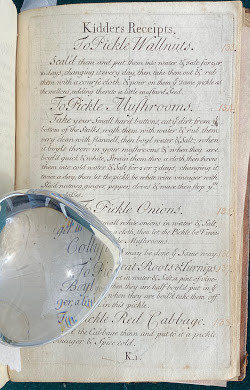 Kidders Receipts,
To Pickle Wallnuts.
Scald them and put them into water & salt for 9 or
10 days, changing it every day, then take them out & rub
them with a coarse cloth, & pour on them ye same pickle as
the mellons, adding therein a little mustard seed.
To Pickle Mushrooms.
Take your Small hard buttons, cut ye dirt from ye
bottom of the Stalks, wash them with water & rub them
very clean with flannell, then boyl water & Salt, when
it boyls throw in your mushrooms & when they are
boyl'd quick & white, Strain them thro a cloth, then throw
them into cold water & Salt for 2 or 3 days, changing it
twice a day, then let the pickle be white wine vinegar with
Sliced nutmeg ginger, pepper, cloves & mace
To Pickle Onions.
small white onions in water & Salt,
a cloth, then let the Pickle be Vineg.
Mushrooms.
may be done ye Same way.
Roots & Turnips.
in water & Salt, a pint of
when they are half boyl'd put in ye
when they are boil'd take them off
in this pickle.
Pickle Red Cabbage.
the Cabbage thin and put to it a pickle
vineager & Spice cold.
K.1.